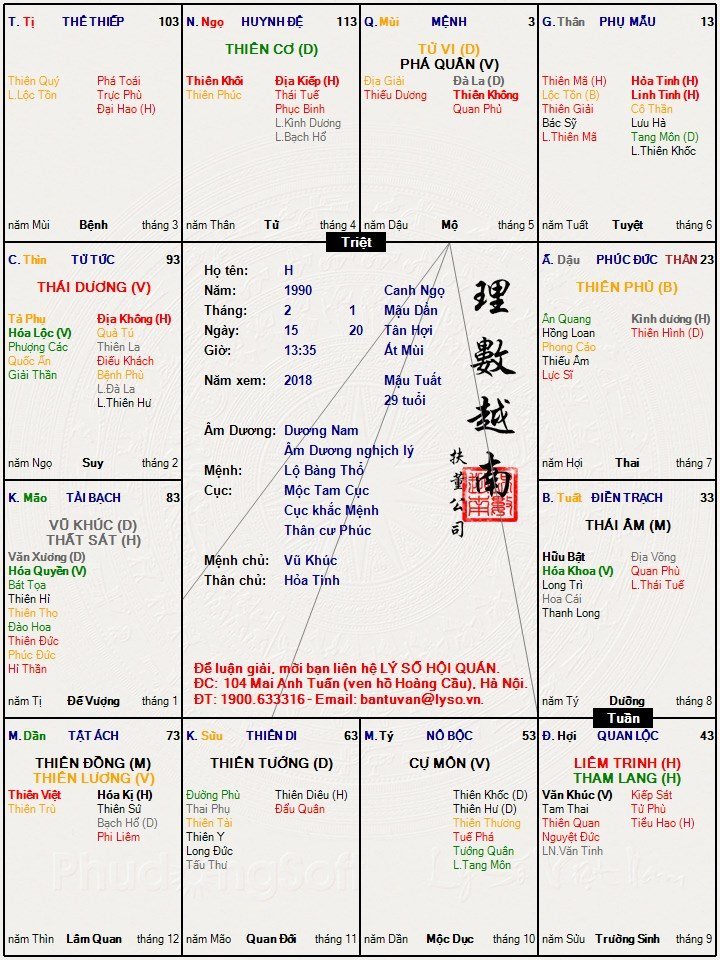 T. Tị THÊ THIẾP 103
Thiên Quý Phá Toái
L.Lộc Tồn Trực Phù
Đại Hao (H)
năm Mùi Bệnh tháng 3
N. Ngọ HUYNH ĐỆ 113
THIÊN CƠ (D)
Thiên Khôi Địa Kiếp (H)
Thiên Phúc Thái Tuế
Phục Binh
L.Kình Dương
L.Bạch Hổ
năm Thân Tử tháng 4
Q. Mùi MỆNH 3
TỬ VI (D)
PHÁ QUÂN (V)
Địa Giải Đà La (D)
Thiếu Dương Thiên Không
Quan Phù
năm Dậu Mộ tháng 5
G. Thân PHỤ MẪU 13
Thiên Mã (H) Hỏa Tinh (H)
Lộc Tồn (B) Linh Tinh (H)
Thiên Giải Cô Thần
Bác Sỹ Lưu Hà
L.Thiên Mã Tang Môn (D)
L.Thiên Khốc
năm Tuất Tuyệt tháng 6
Triệt
C. Thìn TỬ TỨC 93
THÁI DƯƠNG (V)
Tả Phụ Địa Không (H)
Hóa Lộc (V) Quả Tú
Phượng Các Thiên La
Quốc Ấn Điếu Khách
Giải Thần Bệnh Phù
L.Đà La
L.Thiên Hư
năm Ngọ Suy tháng 2
Họ tên: H
Năm: 1990 Canh Ngọ
Tháng: 2 1 Mậu Dần
Ngày: 15 20 Tân Hợi
Giờ: 13:35 Ất Mùi
Năm xem: 2018 Mậu Tuất
29 tuổi
Âm Dương: Dương Nam
Âm Dương nghịch lý
Mệnh: Lộ Bàng Thổ
Cục: Mộc Tam Cục
Cục khắc Mệnh
Thân cư Phúc
Mệnh chủ: Vũ Khúc
Thân chủ: Hỏa Tinh
理數越南
扶董公司
Để luận giải, mời bạn liên hệ LÝ SỐ HỘI QUÁN.
ĐC: 104 Mai Anh Tuấn (ven hồ Hoàng Cầu), Hà Nội.
ĐT: 1900.633316 - Email: bantuvan@lyso.vn.
Ấ. Dậu PHÚC ĐỨC THÂN 23
THIÊN PHỦ (B)
Ân Quang Kình dương (H)
Hồng Loan Thiên Hình (D)
Phong Cáo
Thiếu Âm
Lực Sĩ
năm Hợi Thai tháng 7
K. Mão TÀI BẠCH 83
VŨ KHÚC (D)
THẤT SÁT (H)
Văn Xương (D)
Hóa Quyền (V)
Bát Tọa
Thiên Hỉ
Thiên Thọ
Đào Hoa
Thiên Đức
Phúc Đức
Hỉ Thần
năm Tị Đế Vượng tháng 1
B. Tuất ĐIỀN TRẠCH 33
THÁI ÂM (M)
Hữu Bật Địa Võng
Hóa Khoa (V) Quan Phù
Long Trì L.Thái Tuế
Hoa Cái
Thanh Long
năm Tý Dưỡng tháng 8
Tuần
M. Dần TẬT ÁCH 73
THIÊN ĐỒNG (M)
THIÊN LƯƠNG (V)
Thiên Việt Hóa Kị (H)
Thiên Trù Thiên Sứ
Bạch Hổ (D)
Phi Liêm
năm Thìn Lâm Quan tháng 12
K. Sửu THIÊN DI 63
THIÊN TƯỚNG (D)
Đường Phù Thiên Diêu (H)
Thai Phụ Đẩu Quân
Thiên Tài
Thiên Y
Long Đức
Tấu Thư
năm Mão Quan Đới tháng 11
M. Tý NÔ BỘC 53
CỰ MÔN (V)
Thiên Khốc (D)
Thiên Hư (D)
Thiên Thương
Tuế Phá
Tướng Quân
L.Tang Môn
năm Dần Mộc Dục tháng 10
Đ. Hợi QUAN LỘC 43
LIÊM TRINH (H)
THAM LANG (H)
Văn Khúc (V) Kiếp Sát
Tam Thai Tử Phù
Thiên Quan Tiểu Hao (H)
Nguyệt Đức
LN.Văn Tinh
năm Sửu Trường Sinh tháng 9